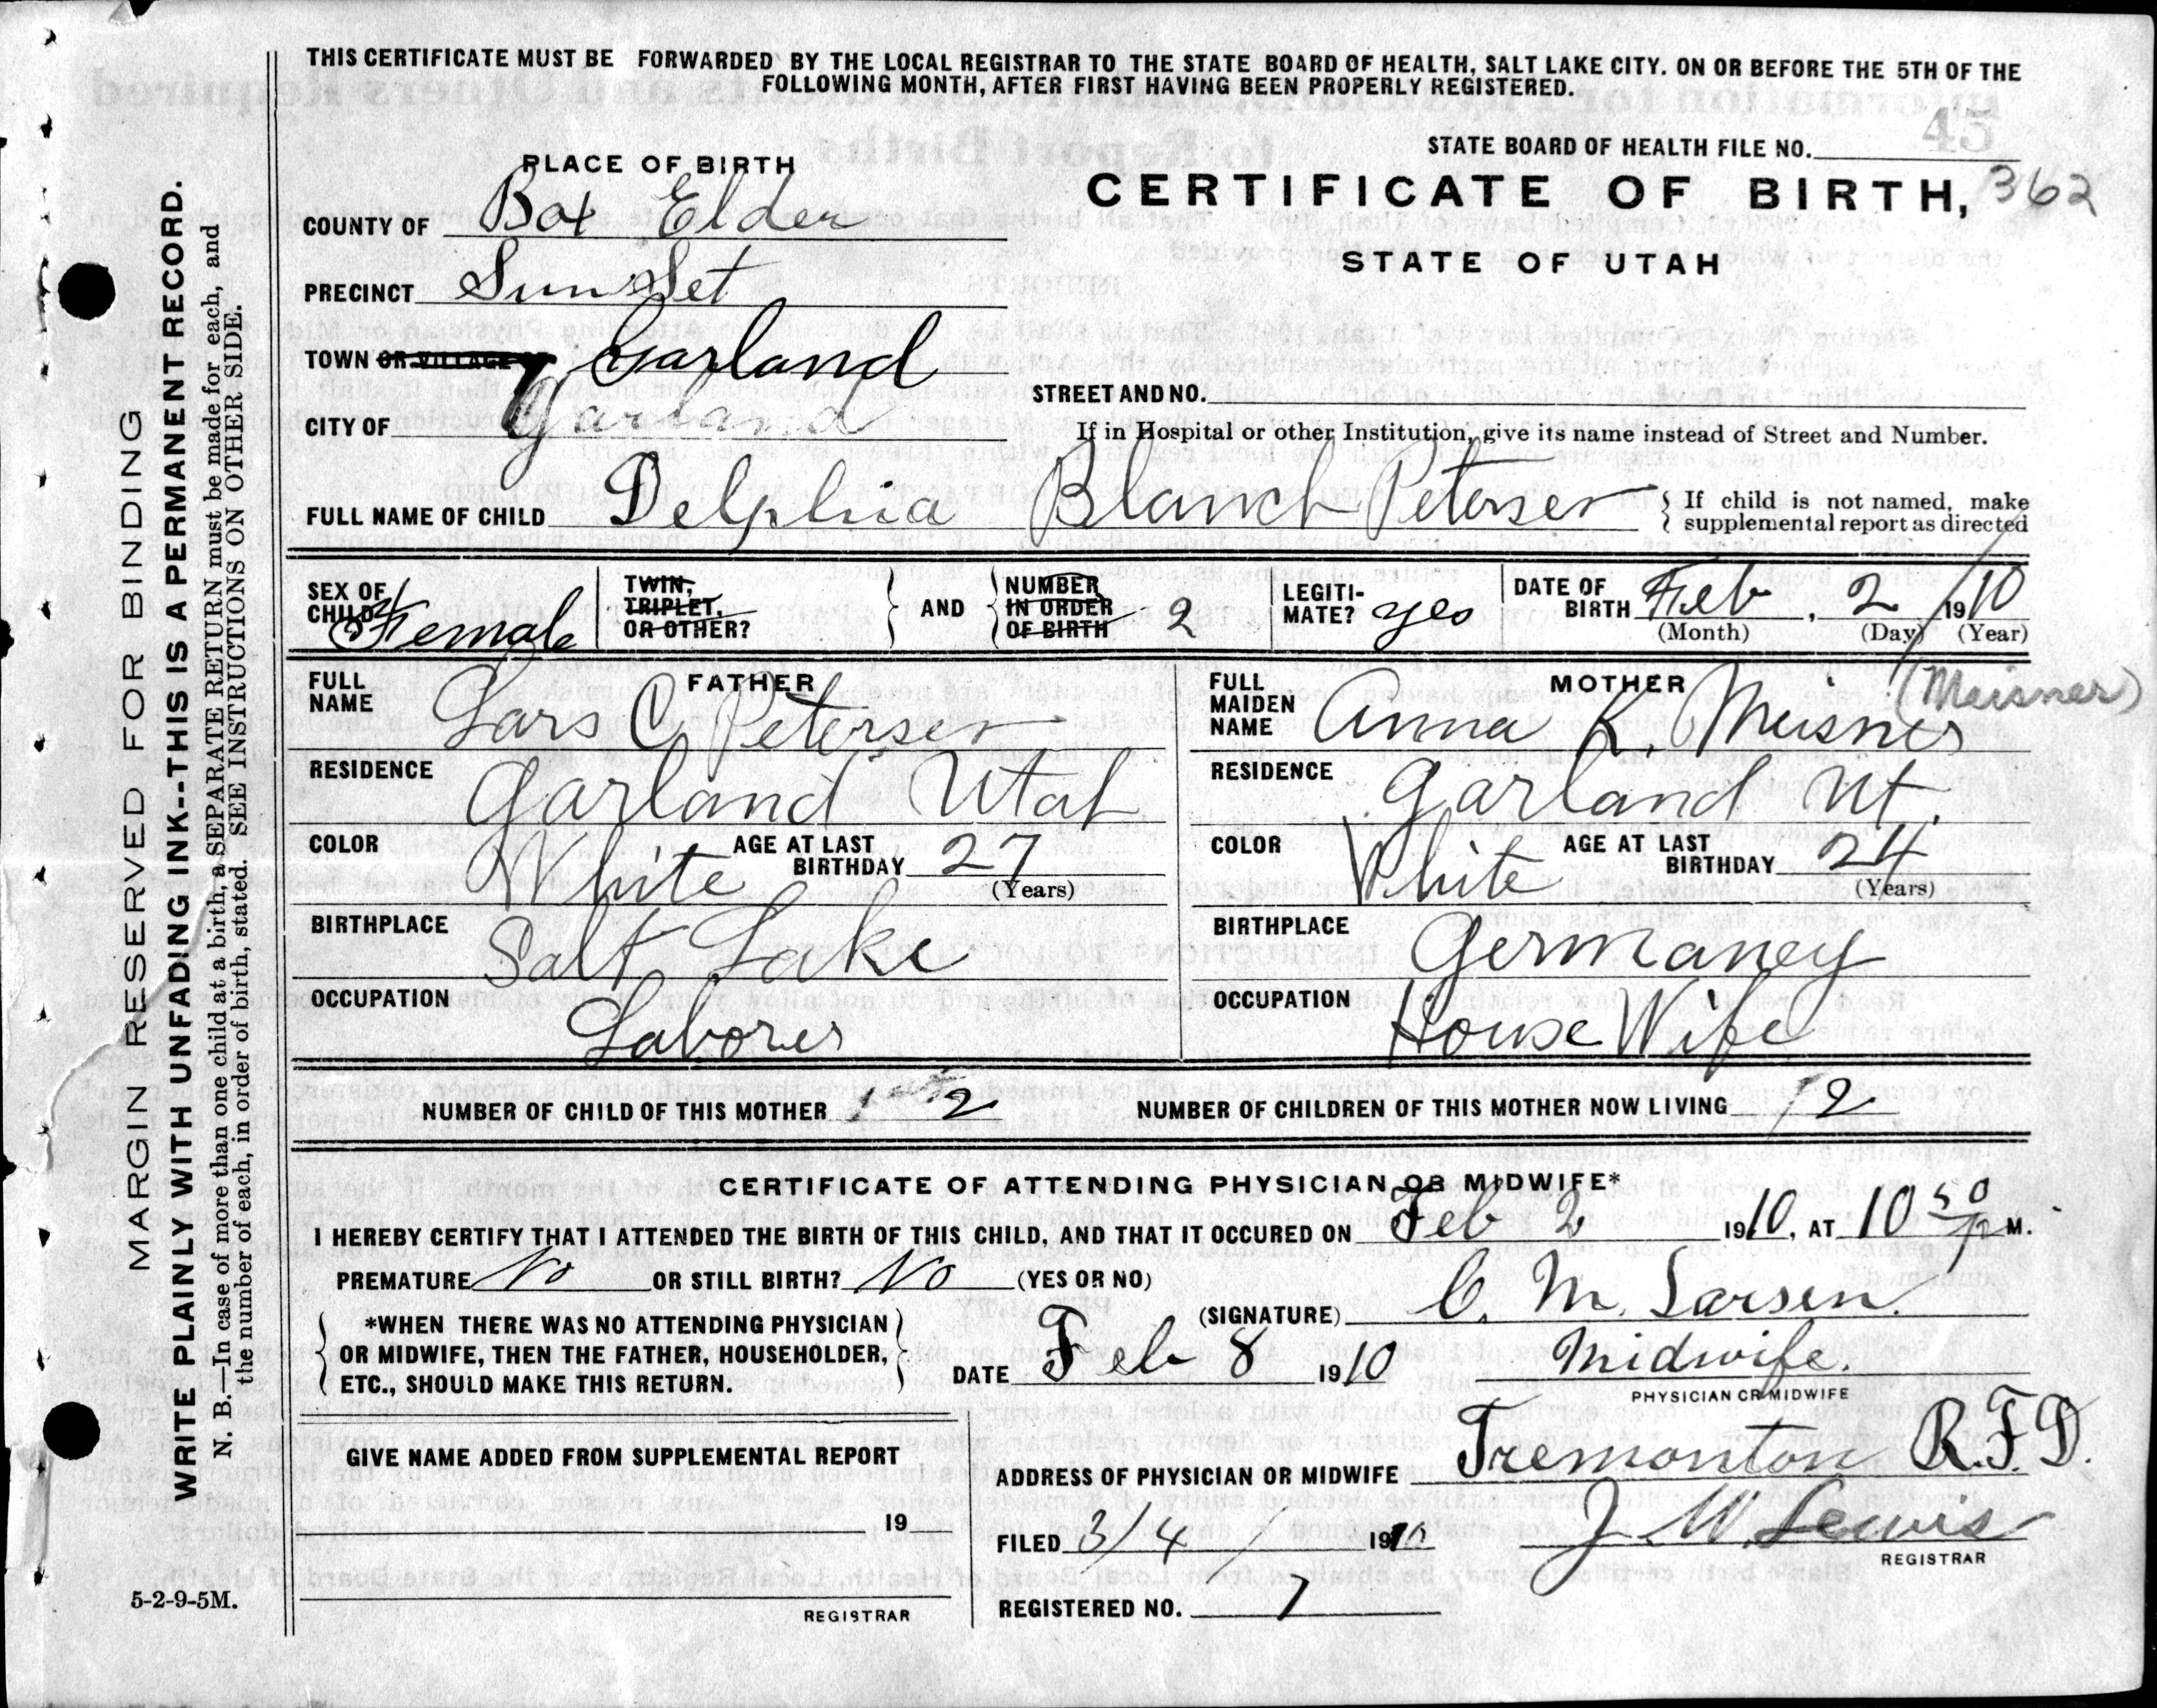 THIS CERTIFICATE MUST BE FORWARDED BY THE LOCAL REGISTRAR TO THE STATE BOARD OF HEALTH, SALT LAKE CITY. ON OR BEFORE THE 5TH OF THE
FOLLOWING MONTH, AFTER FIRST HAVING BEEN PROPERLY REGISTERED.
45
STATE BOARD OF HEALTH FILE NO.
PLACE OF BIRTH
CERTIFICATE OF BIRTH, 362
STATE OF UTAH
COUNTY OF Box Elder
PRECINCT Sun Set
TOWN OR VILLAGE OF Garland
STREET AND NO.
CITY OF Garland
If in Hospital or other Institution, give its name instead of Street and Number.
FULL NAME OF CHILD Delphia Blanch Petersen { If child is not named, make
supplemental report as directed
SEX OF CHILD Female
TWIN, TRIPLET, OR OTHER? } AND { NUMBER IN ORDER OF BIRTH 2
LEGITI-MATE? yes
DATE OF BIRTH Feb, 2 1910
(Month) (Day) (Year)
FATHER
FULL NAME Lars C Petersen
RESIDENCE Garland Utah
COLOR White AGE AT LAST BIRTHDAY 27
(Years)
BIRTHPLACE Salt Lake
OCCUPATION Laborer
MOTHER
FULL MAIDEN NAME Anna K. Meisner (Meisner)
RESIDENCE Garland Ut.
COLOR White AGE AT LAST BIRTHDAY 24
(Years)
BIRTHPLACE Germaney
OCCUPATION House Wife
NUMBER OF CHILD OF THIS MOTHER 2 NUMBER OF CHILDREN OF THIS MOTHER NOW LIVING 2
CERTIFICATE OF ATTENDING PHYSICIAN OR MIDWIFE*
I HEREBY CERTIFY THAT I ATTENDED THE BIRTH OF THIS CHILD, AND THAT IT OCCURED ON Feb 2 1910, AT 10 50 P M.
PREMATURE No OR STILL BIRTH? No (YES OR NO)
(SIGNATURE) C. M. Larsen.
{ *WHEN THERE WAS NO ATTENDING PHYSICIAN
OR MIDWIFE, THEN THE FATHER, HOUSEHOLDER,
ETC., SHOULD MAKE THIS RETURN. }
DATE Feb 8 1910 Midwife.
PHYSICIAN OR MIDWIFE
GIVE NAME ADDED FROM SUPPLEMENTAL REPORT
19
REGISTRAR
ADDRESS OF PHYSICIAN OR MIDWIFE Tremonton R.F.D.
FILED 3/4/ 1910 J. W. Lewis
REGISTRAR
REGISTERED NO. 7
5-2-9-5M.
MARGIN RESERVED FOR BINDING
WRITE PLAINLY WITH UNFADING INK--THIS IS A PERMANENT RECORD.
N. B.—In case of more than one child at a birth, a SEPARATE RETURN must be made for each, and
the number of each, in order of birth, stated. SEE INSTRUCTIONS ON OTHER SIDE.